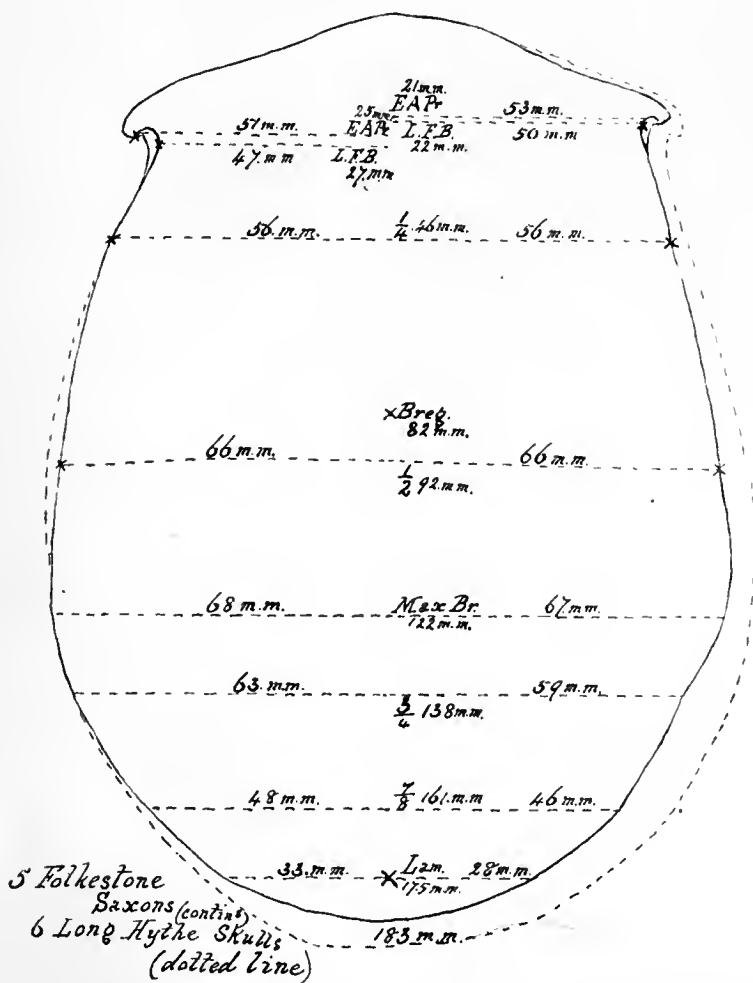 21 mm.
EAPr
25 mm 53 mm.
51 m.m. EAPr L.F.B. 50 m.m
47. m m L.F.B. 22 m.m.
27. mm
56. m.m. 1/4 .46 m.m. 56 m.m.
×Breg.
82 m.m.
66 m.m. 66 m.m.
1/2 92. m.m.
68 m.m. Max Br. 67 mm.
122 m.m.
63. m.m. 59 m.m.
3/4 138 m.m.
48 m.m. 7/8 161. m.m 46 m.m.
33. m.m. ×Lam. 28 m.m.
175 m.m.
5 Folkestone
Saxons (contin<sup>s</sup>)
6 Long Hythe Skulls 183 m.m.
(dotted line)